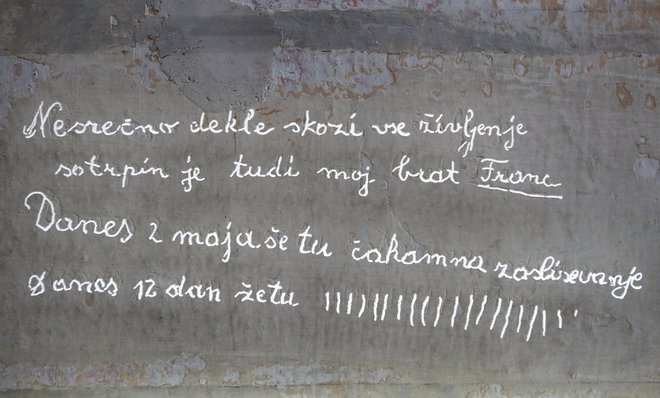 Nesrečno dekle skozi vse življenje
sotrpin je tudi moj brat Franc
Danes 2 maja še tu čakamna zaslisevanje
Danes 12 dan žetu